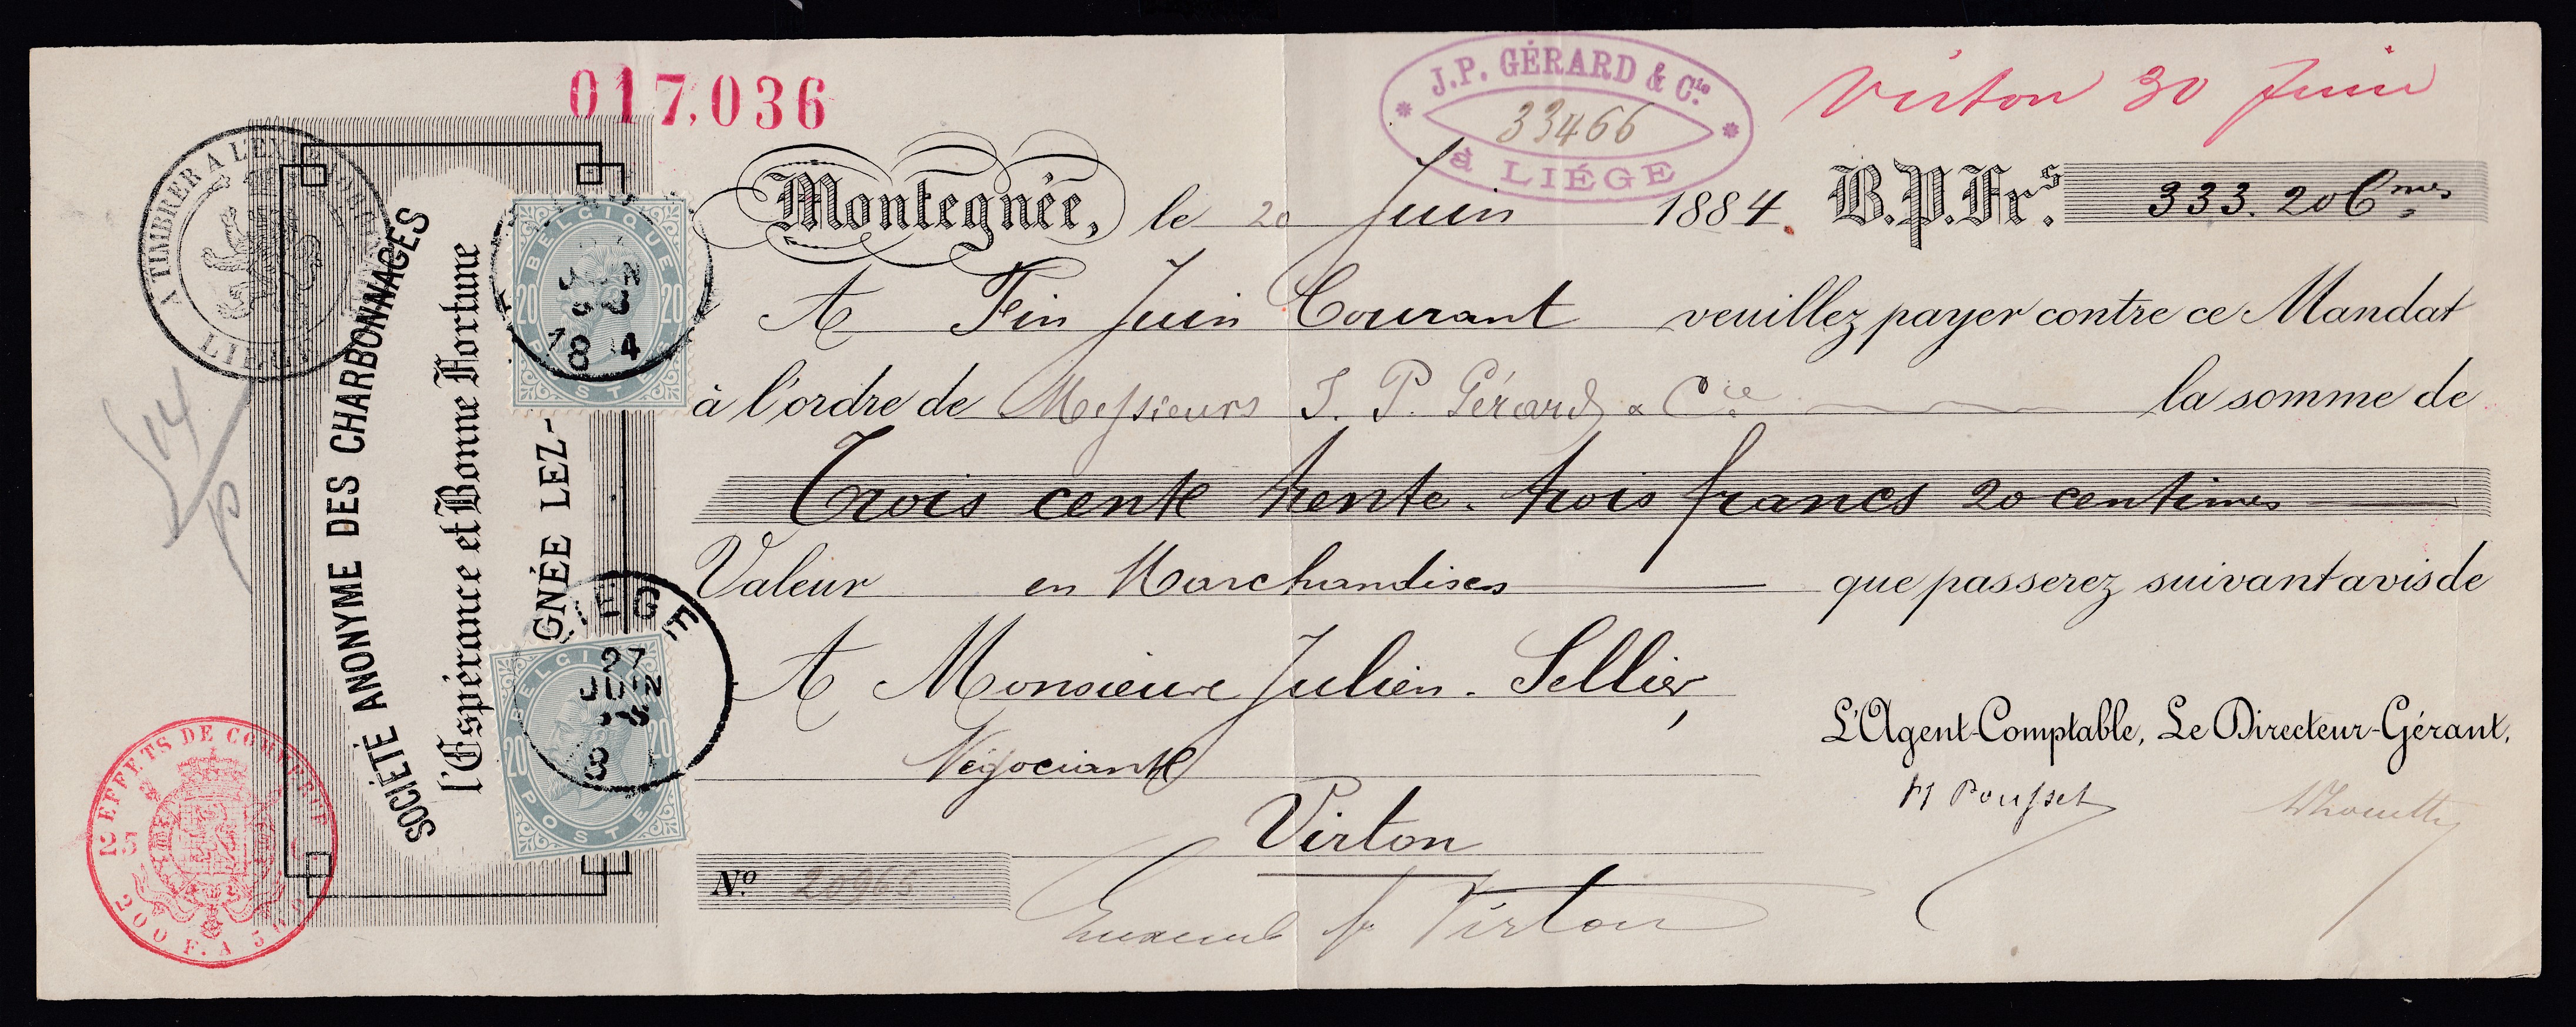 017,036
J.P. GÉRARD & Cie
33466
à LIÉGE
Virton 30 Juin
Montegnée, le 20 Juin 1884. B.P.Frs. 333. 20 Cmes
A Fin Juin Courant veuillez payer contre ce Mandat
à l'ordre de Messieurs J. P. Gérard & Cie la somme de
Trois cent trente-trois francs 20 centimes
Valeur en Marchandises que passerez suivant avis de
A Monsieur Julien-Sellier,
Négociant
Virton
L'Agent-Comptable, Le Directeur-Gérant,
No 20966
Virton
SOCIÉTÉ ANONYME DES CHARBONNAGES
l'Espérance et Bonne Fortune
GNÉE LEZ-
A TIMBRER A L'EX
BELGIQUE
20 20
POSTES
JUIN
18 4
LIEGE
27
JUIN
8
BELGI
20 20
POSTE
EFFETS DE COMMERCE
200 F. A 500